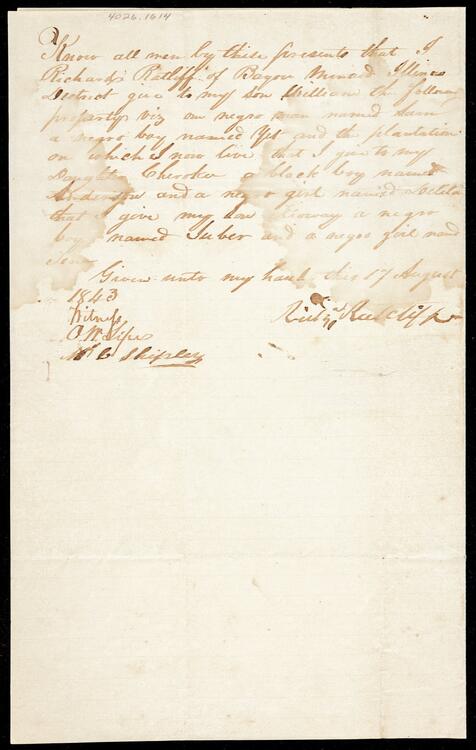 4026.1614
Know all men by these presents that I
Richard Ratliff of Bayou Menard Illinois
District give to my son William the following
property viz one negro man named Sam
a negro boy named Yet and the plantation
on which I now live that I give to my
Daughter Cherokee a black boy named
Anderson and a negro girl named
that I give my son a negro
boy named Juber and a negro girl named
Given unto my hand this 17 August
1843
Witness
O. W. Lipe
Wm C Shipley
Richd Ratcliff